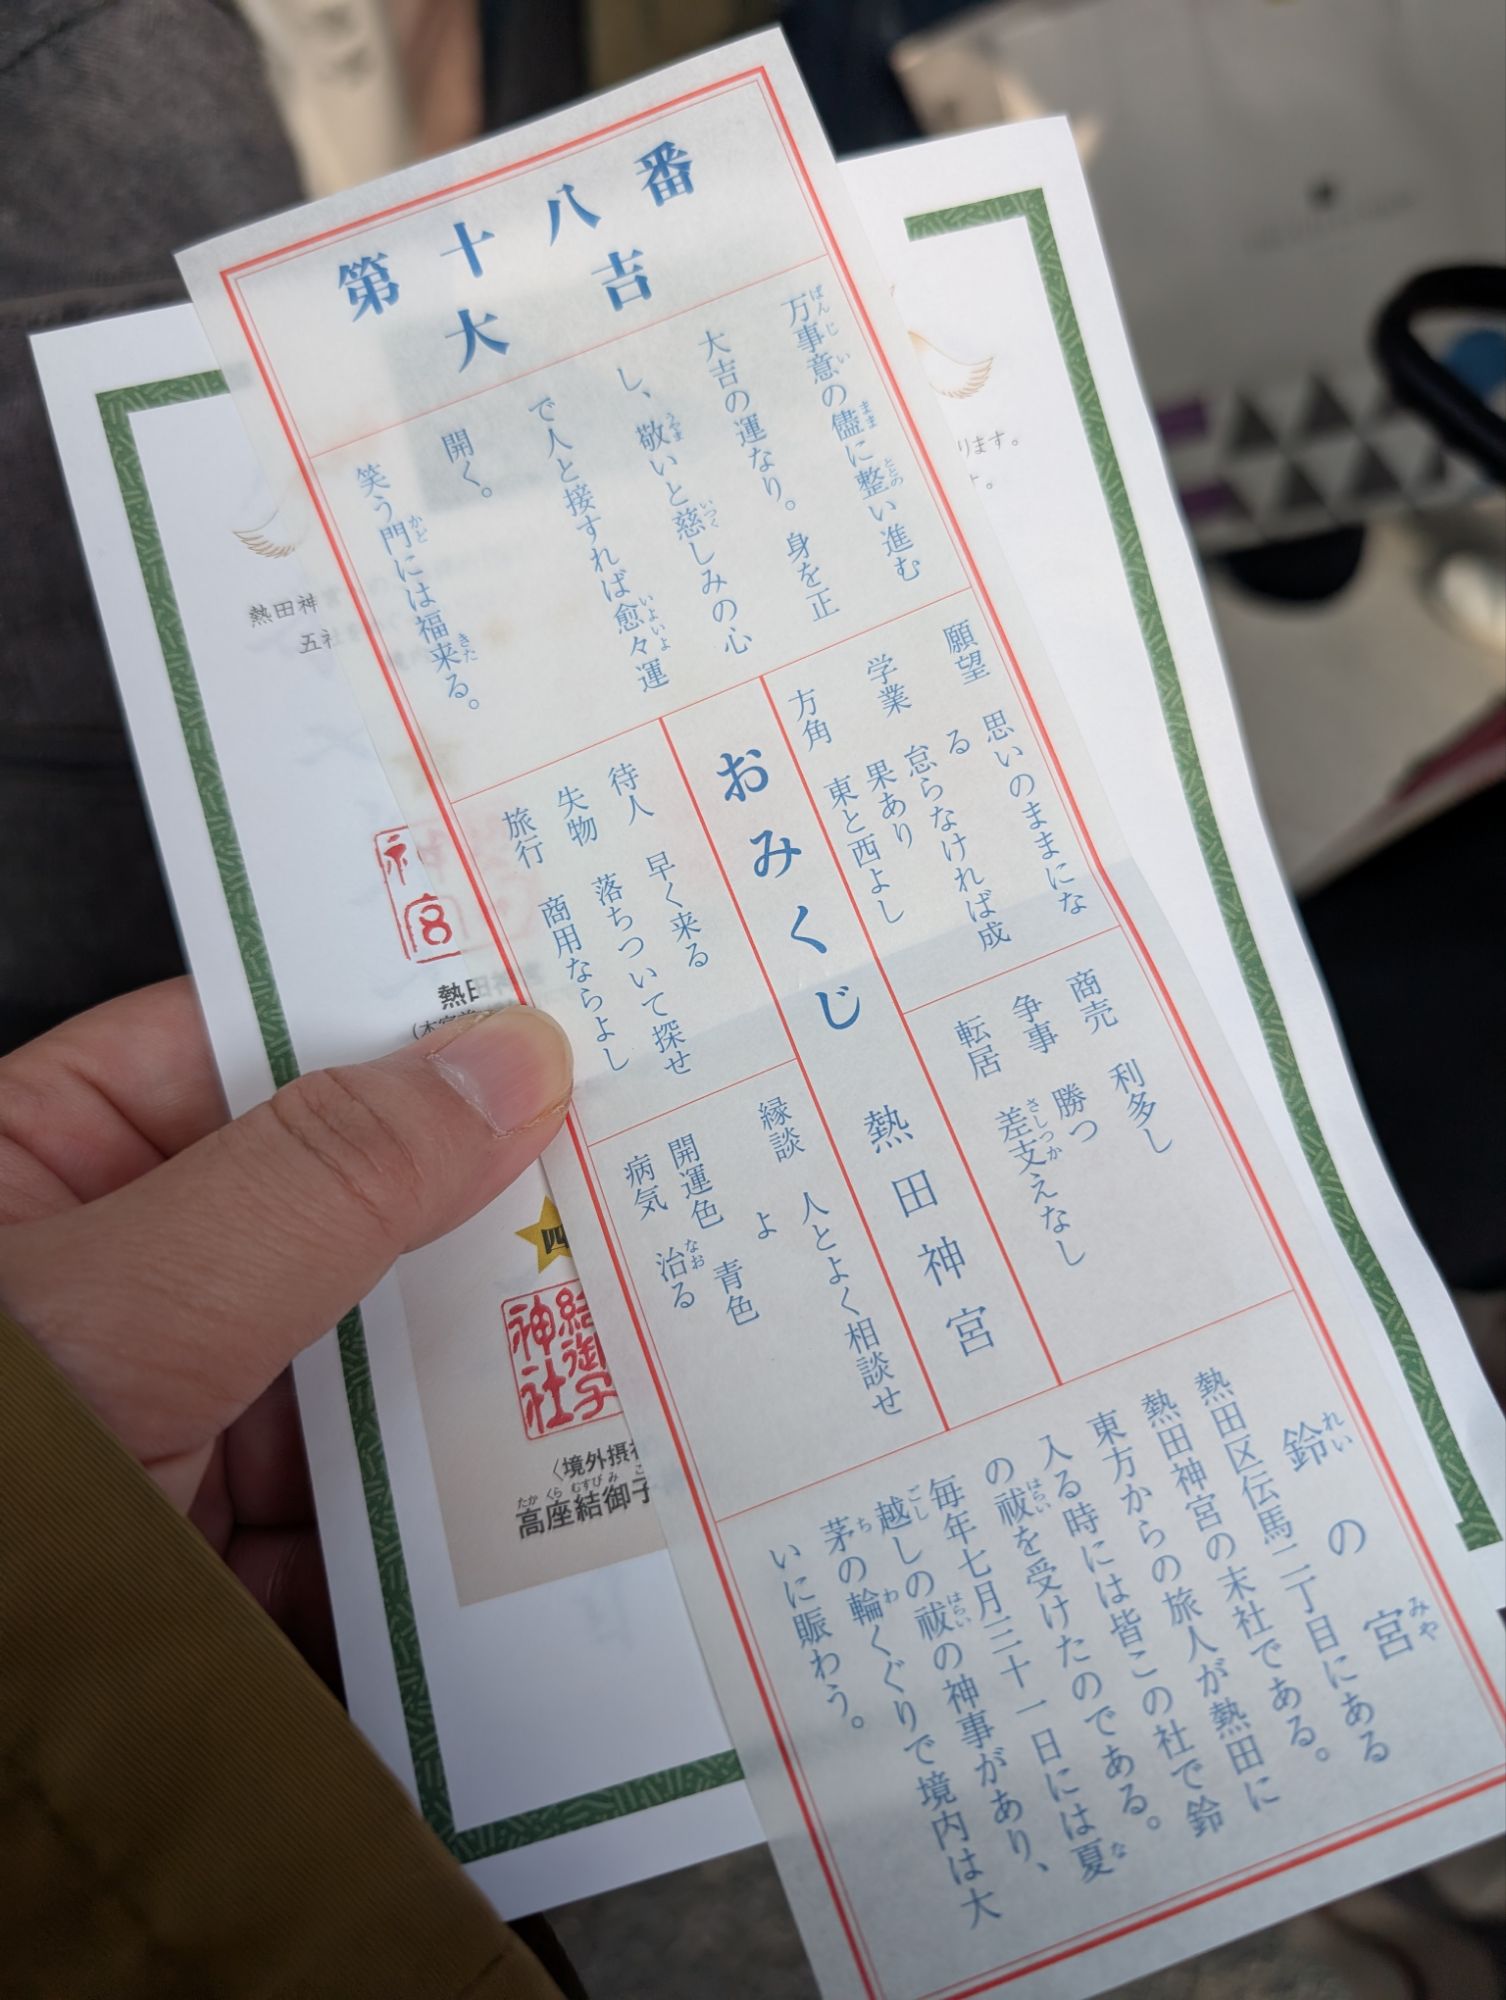 第十八番
大吉
万事意の儘に整い進む
大吉の運なり。身を正
し、敬いと慈しみの心
で人と接すれば愈々運
開く。
笑う門には福来る。
願望 思いのままにな
る
学業 怠らなければ成
果あり
方角 東と西よし
商売 利多し
争事 勝つ
転居 差支えなし
おみくじ 熱田神宮
待人 早く来る
失物 落ちついて探せ
旅行 商用ならよし
縁談 人とよく相談せ
よ
開運色 青色
病気 治る
鈴の宮
熱田区伝馬二丁目にある
熱田神宮の末社である。
東方からの旅人が熱田に
入る時には皆この社で鈴
の祓を受けたのである。
毎年七月三十一日には夏
越しの祓の神事があり、
茅の輪くぐりで境内は大
いに賑わう。
ります。
熱田神
五社
熱田
四
結御子
神社
〈境外摂社
高座結御子